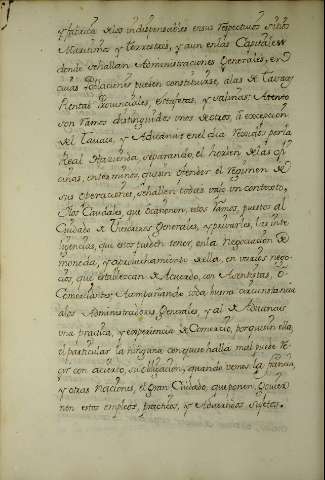 y fabrica de los indispensables en sus respectivos sitios
Maritimos y terrestres, y aun en las Capitales
donde se hallan Administraciones Generales, en
cuias Poblaciones pueden constituirse, a las de
Rentas Provinciales, estafetas, y salinas: Atento
son ramos distinguidos unos de otros, a excepcion
del Tavaco, y Aduanas en el dia por la
Real Hazienda, separando, el horden de las ofi
cinas, en terminos, que sin ofender el regimen de
sus operaciones, se hallen todas vajo un contexto,
Los Caudales, que estos ramos, puestos al
Cuidado de Thesoreros Generales, y privarles, las inte
ligencias, que estos pueden tener, en la Negociacion de
moneda, y aprovechamiento de ella, en varios nego
cios, que establezcan de Acuerdo, con Asentistas, o
Comerciantes; Acompañando toda buena circunstancia
a los Administradores Generales, y al de Aduanas
una practica, y experiencia de Comercio, porque sin ella,
el particular la ninguna con que se halla mal puede re
gir con acierto, su obligacion, quando vemos la francia,
y otras Naciones, el gran Cuidado, que ponen,
non estos empleos, practicos, y Advertidos Sujetos.